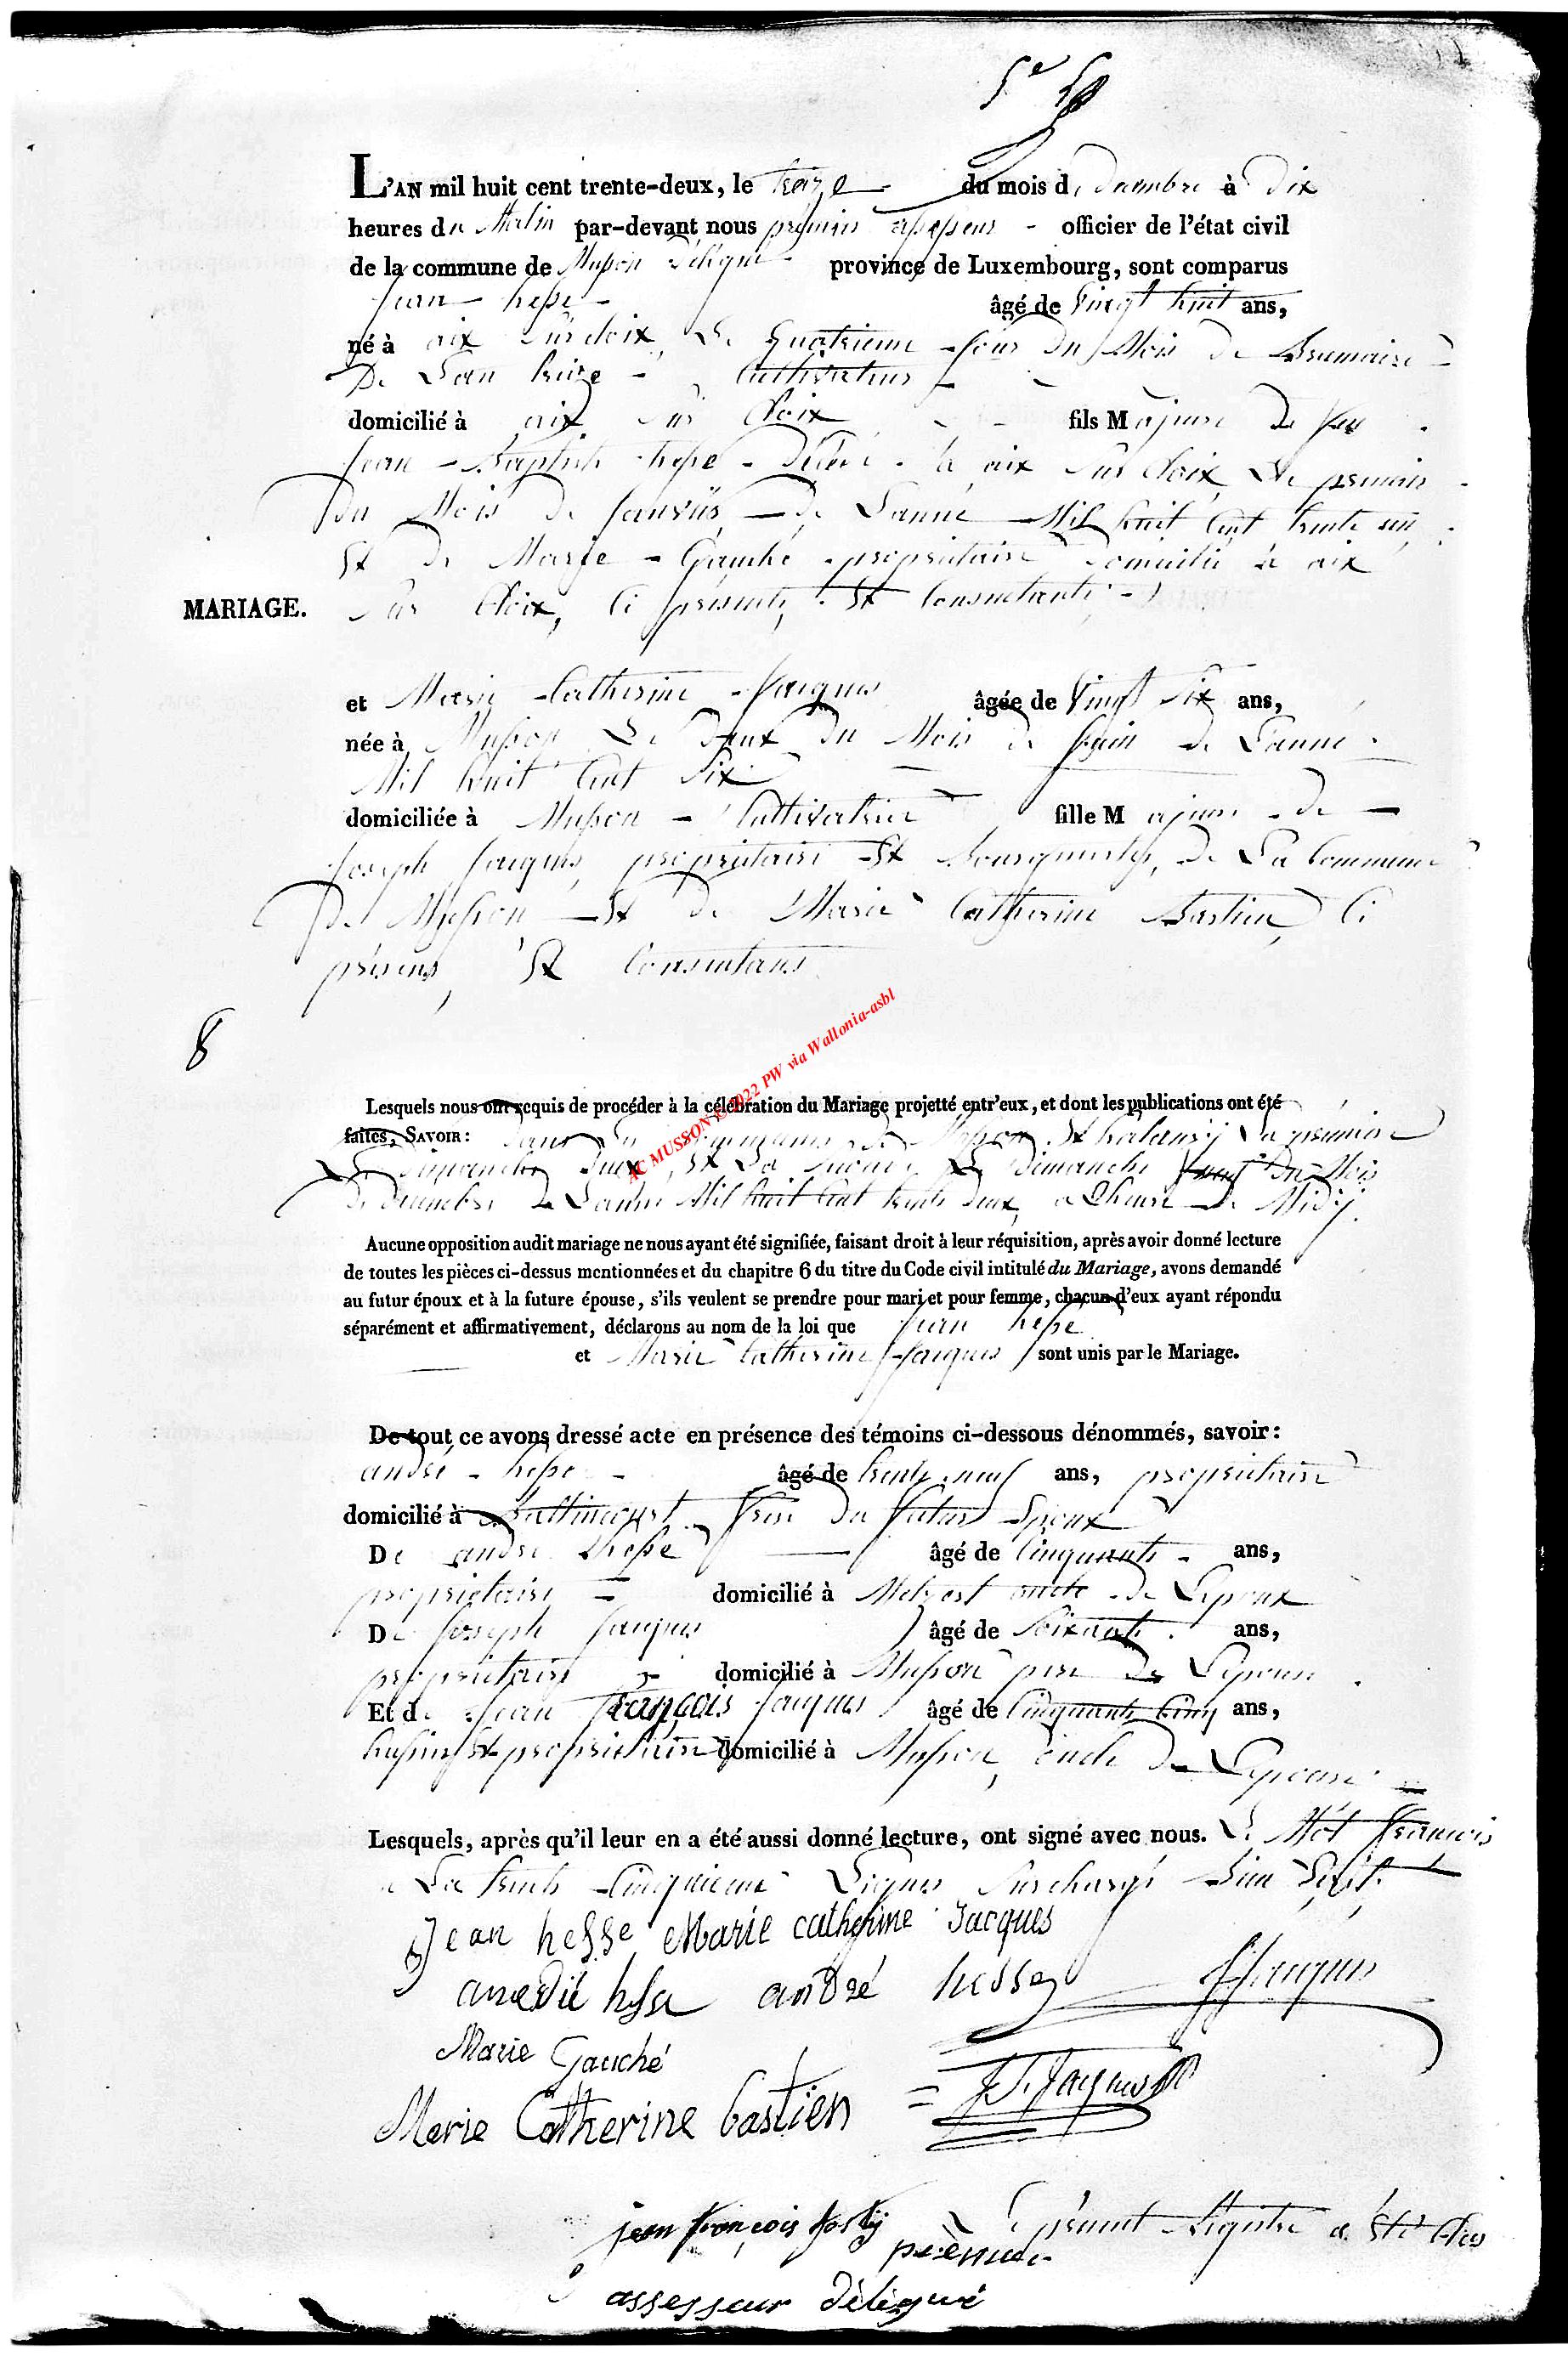 5e
L'AN mil huit cent trente-deux, le treize du mois de decembre à Dix
heures du Matin par-devant nous prémier assesseur officier de l'état civil
de la commune de Musson délégué province de Luxembourg, sont comparus
Jean hesse âgé de Vingt huit ans,
né à aix sur cloix, Le quatrieme Jour du Mois de Brumaire
De L'an treize Cultivateur
domicilié à aix sur Cloix fils Majeure de feu
Jean Baptiste hesse décédé à aix sur Cloix, Le premier
du Mois de Janvier de L'année Mil huit Cent trente un
Et de Marie Gauché propriétaire domicilié à aix
MARIAGE.
sur Cloix, Ci présente, Et Consentante
et Marie Catherine Jacques âgée de Vingt Six ans,
née à Musson Le Deux du Mois de Juin de L'année
Mil huit Cent Six
domiciliée à Musson Cultivatrice fille Majeure de
Joseph Jacques, propriétaire Et Bourguemestre, de La Commune
de Musson Et de Marie Catherine Bastien, Ci
présens, Et Consentans
8
AC MUSSON ©2022 PW via Wallonia-asbl
Lesquels nous ont requis de procéder à la célébration du Mariage projetté entr'eux, et dont les publications ont été
faites, SAVOIR: dans les Communes de Musson Et halanzy La prémiere
Le Dimanche Deux, Et La seconde Le Dimanche neuf du Mois
de decembre de L'année Mil huit Cent trente deux, a L'heure de Midy.
Aucune opposition audit mariage ne nous ayant été signifiée, faisant droit à leur réquisition, après avoir donné lecture
de toutes les pièces ci-dessus mentionnées et du chapitre 6 du titre du Code civil intitulé du Mariage, avons demandé
au futur époux et à la future épouse, s'ils veulent se prendre pour mari et pour femme, chacun d'eux ayant répondu
séparément et affirmativement, déclarons au nom de la loi que Jean hesse
et Marie Catherine Jacques sont unis par le Mariage.
De tout ce avons dressé acte en présence des témoins ci-dessous dénommés, savoir:
andré hesse âgé de trente neuf ans, propriétaire
domicilié à Battincourt frere du futur Epoux
De andré hesse âgé de Cinquante ans,
propriétaire domicilié à Metzert oncle de L'epoux
De Joseph Jacques âgé de Soixante ans,
propriétaire domicilié à Musson pere de L'epouse
Et de Jean François Jacques âgé de Cinquante Cinq ans,
propriétaire domicilié à Musson, oncle de L'epouse
Lesquels, après qu'il leur en a été aussi donné lecture, ont signé avec nous. Le Mot François
a La trente Cinquieme Lignes surchargé
Jean hesse Marie catherine Jacques
andré hesse JJacques
Marie Gauché
Marie Catherine bastien J.F. Jacques
jean françois present Registre a été Clos
prémier
assesseur délégué